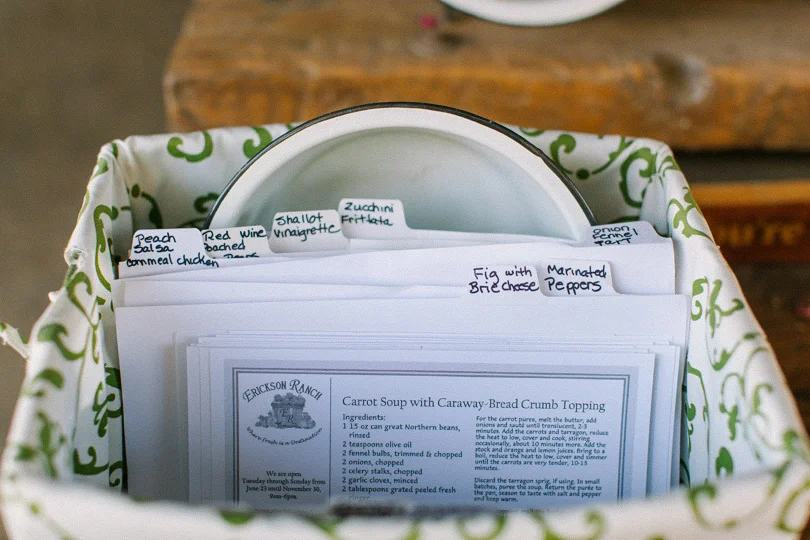 Peach
Salsa
cornmeal chicken
Red Wine
Poached
Pears
Shallot
Vinaigrette
Zucchini
Frittata
Onion
Fennel
Tart
Fig with
Brie cheese
Marinated
Peppers
ERICKSON RANCH
ER
Where Fresh is n Destination
We are open
Tuesday through Sunday from
June 23 until November 30,
9am-6pm.
Carrot Soup with Caraway-Bread Crumb Topping
Ingredients:
1 15 oz can great Northern beans,
rinsed
2 teaspoons olive oil
2 fennel bulbs, trimmed & chopped
2 onions, chopped
2 celery stalks, chopped
2 garlic cloves, minced
2 tablespoons grated peeled fresh
ginger
For the carrot puree, melt the butter, add
onions and sauté until translucent, 2-3
minutes. Add the carrots and tarragon, reduce
the heat to low, cover and cook, stirring
occasionally, about 10 minutes more. Add the
stock and orange and lemon juices. Bring to a
boil, reduce the heat to low, cover and simmer
until the carrots are very tender, 10-15
minutes.
Discard the tarragon sprig, if using. In small
batches, puree the soup. Return the purée to
the pan, season to taste with salt and pepper
and keep warm.